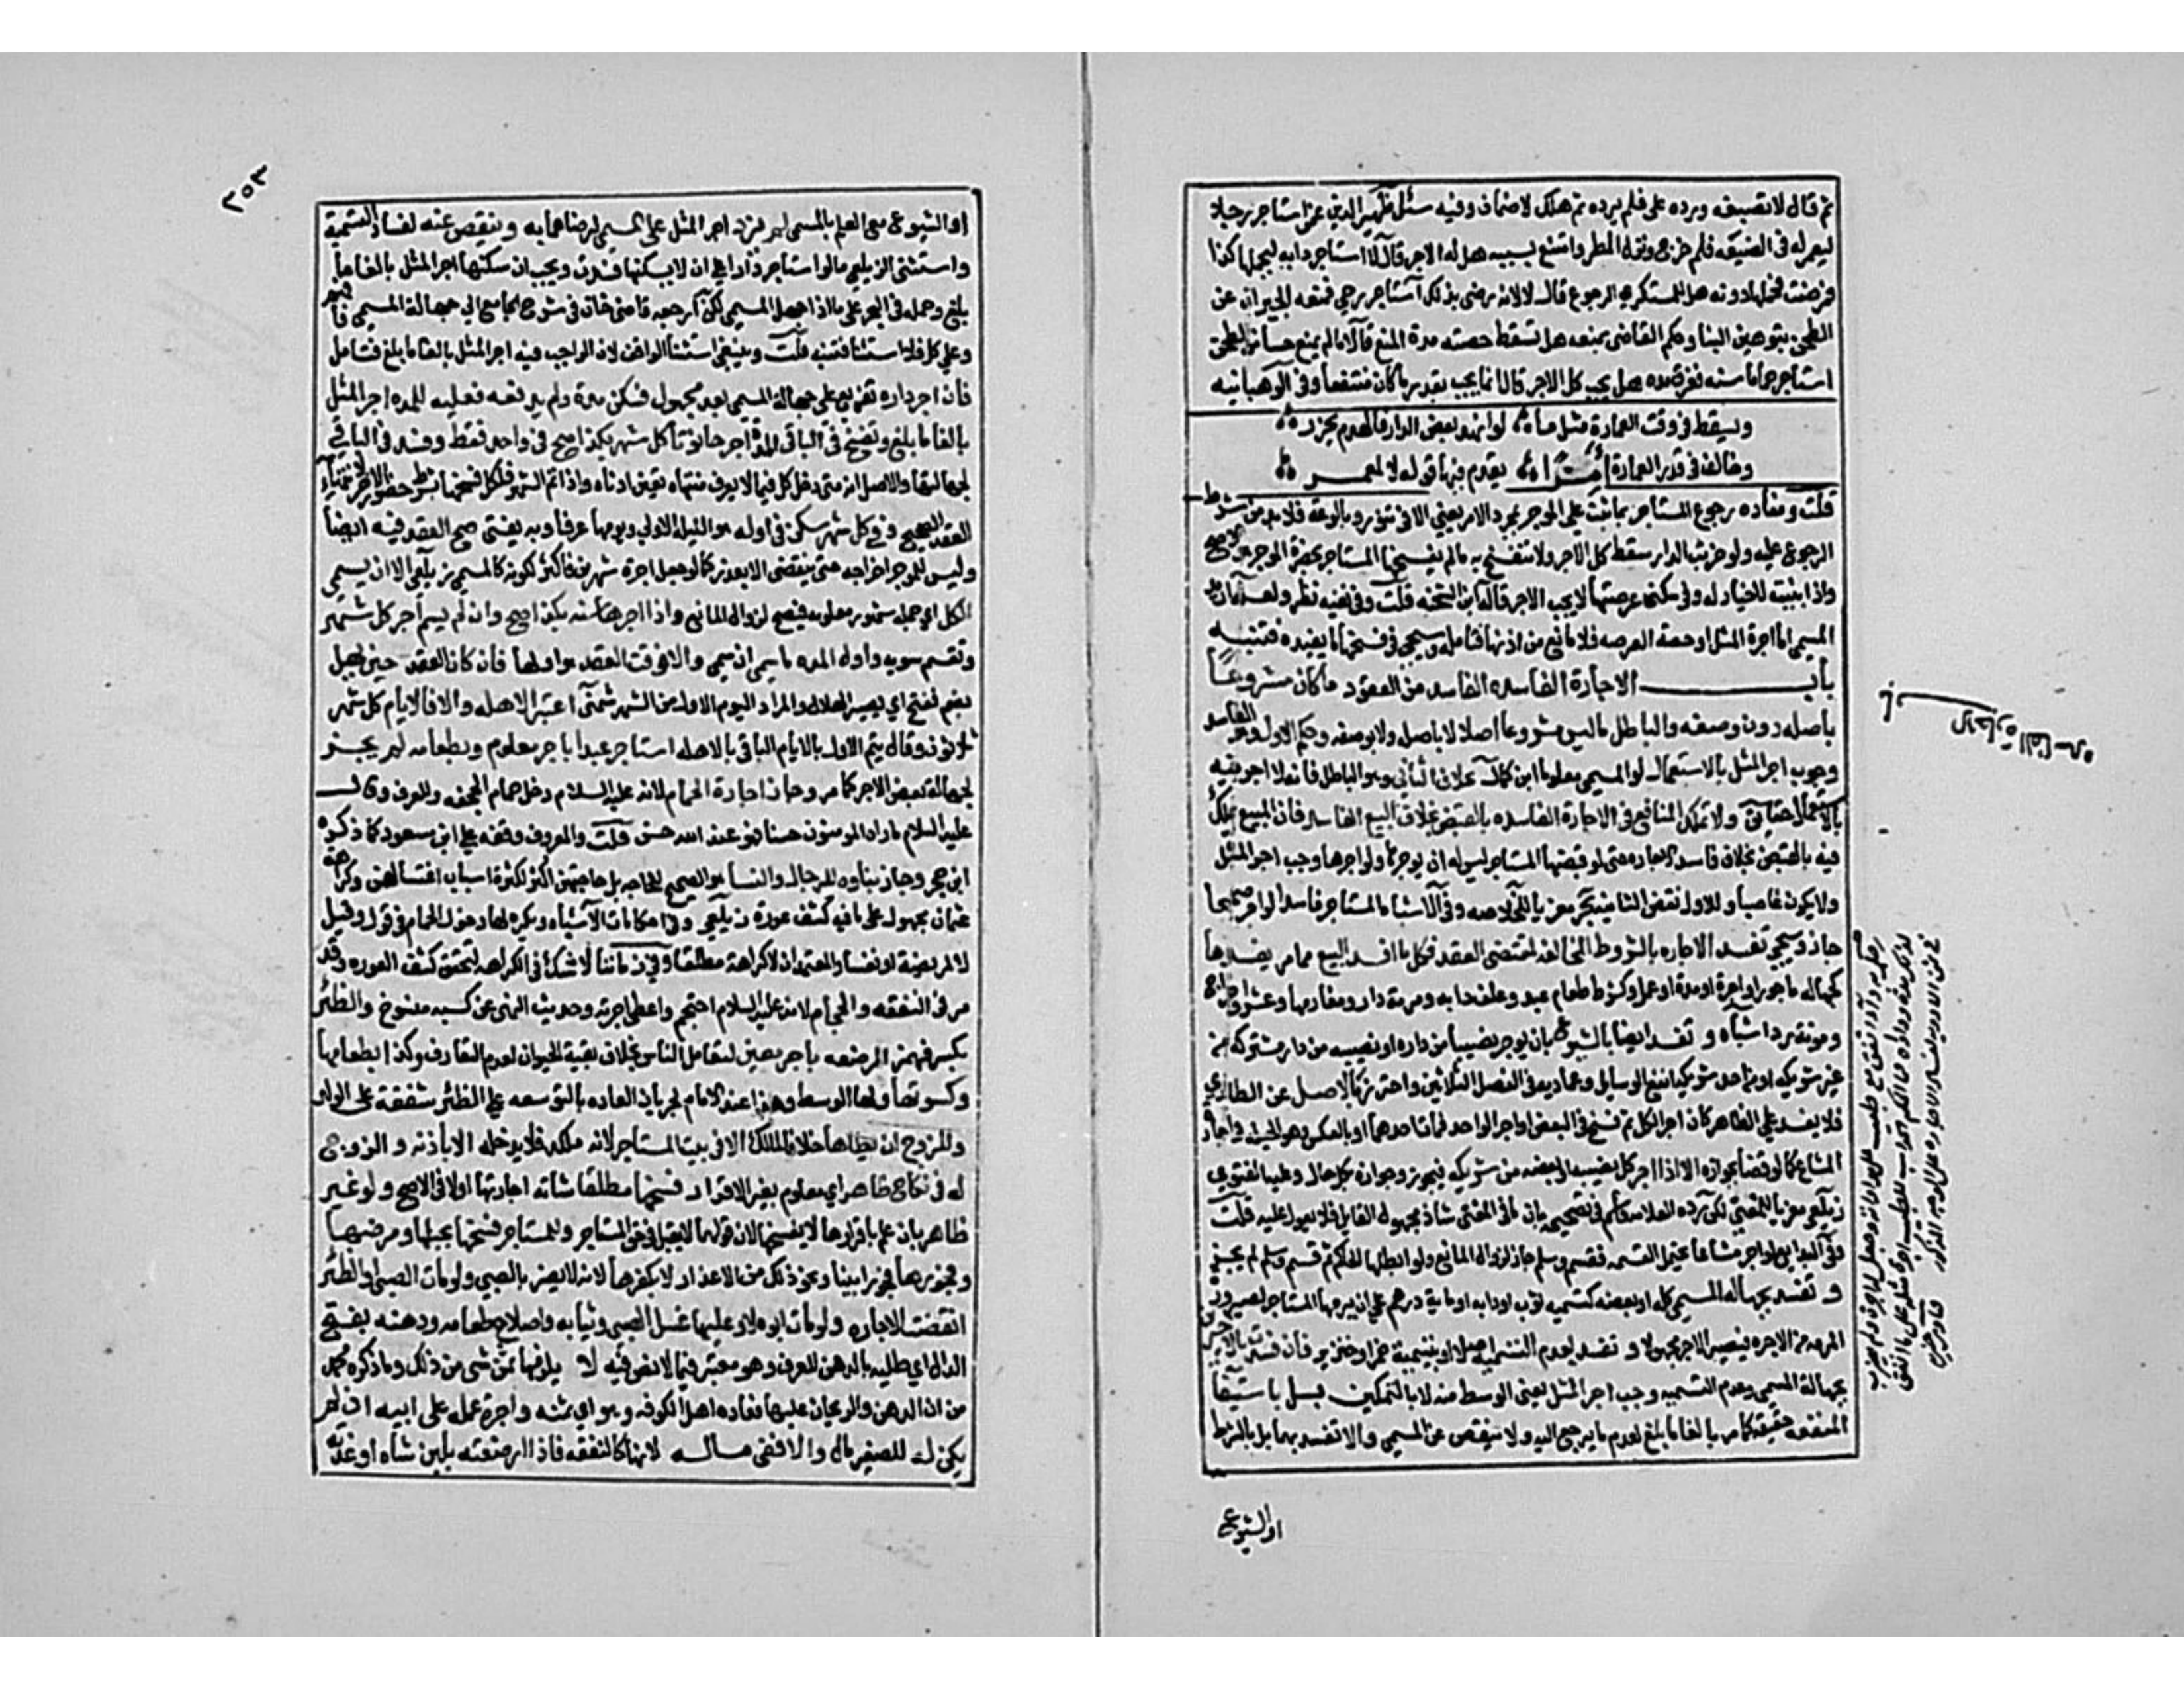 ثم قال لا تصبغه ورده علي فلم يرده ثم هلك لا ضمان وفيه سئل ظهير الدين عمن استاجر رجلا
ليعمر له في الضيعه فلم خرج ونزل المطر وامتنع بسببه هل له الاجر قال لا استاجر دابه ليحملها كذا
فمرضت فحملها دونه هل للمستكري الرجوع قال لا لانه رضي بذلك استاجر رحي فمنعه الجيران عن
الطحن بتوهين البنا وحكم القاضي بمنعه هل تسقط حصته مدة المنع قال لا ما لم يمنع حسا من الطحن
استاجر حماما سنه فغرق مده هل يجب كل الاجر قال انما يجب بقدر ما كان منتفعا وفي الوهبانيه
ويسقط في وقت العمارة مثل ما لو انهد بعض الدار فالهدم يحزر
وخالف في قدر العمارة يقدم فيها قوله لا المعمر
قلت ومفاده رجوع المستاجر بما بنت علي الموجر بمجرد الامر يعني الا في تنور وبالوعه فلا بد من شرط
الرجوع عليه ولو خربت الدار سقط كل الاجر ولا تنفسخ به ما لم يفسخها المستاجر بحضرة الموجر هو الاصح
واذا بنيت لا خيار له وفي سكنى عرصتها لا يجب الاجر قاله ابن الشحنه قلت وفي نفيه نظر ولعله
المسمي اما اجرة المثل او حصة العرصه فلا مانع من اذنها فتامل وسيجي في فسخها ما يفيده فتنبه
باب الاجارة الفاسده الفاسد من العقود ما كان مشروعا
باصله دون وصفه والباطل ما ليس مشروعا اصلا لا باصله ولا بوصفه وحكم الاول وهو الفاسد
وجوب اجر المثل بالاستعمال لو المسمي معلوما ابن كمال بخلاف الثاني وهو الباطل فانه لا اجر فيه
بالاستعمال حقايق ولا تملك المنافع في الاجارة الفاسده بالقبض بخلاف البيع الفاسد فان المبيع يملك
فيه بالقبض بخلاف فاسد الاجاره حتى لو قبضها المستاجر ليس له ان يوجرها ولو اجرها وجب اجر المثل
ولا يكون غاصبا وللاول نقض الثانيه بحر معزيا للخلاصه وفي الاشباه المستاجر فاسدا لو اجر صحيحا
جاز وسيجي تفسد الاجاره بالشروط المخالفه لمقتضى العقد فكل ما افسد البيع مما مر يفسدها
كجهالة ماجور او اجرة او مدة او عمل وكشرط طعام عبد وعلف دابه ومرمة دار ومغارمها وعشر او خراج
ومونة رد اشباه وتفسد ايضا بالشيوع بان يوجر نصيبا من داره او نصيبه من دار مشتركه من
غير شريكه او من احد شريكيه انفع الوسايل وعماديه في الفصل الثلاثين واحترز بالاصل عن الطاري
فلا يفسد علي الظاهر كان اجر الكل ثم فسخ في البعض او اجر الواحد فمات احدهما او بالعكس وهو الحيله في اجارة
المشاع كما لو قضا بجوازه الا اذا اجر كل نصيبه او بعضه من شريكه فيجوز وجوازه بكل حال وعليه الفتوي
زيلعي معزيا للمغني لكن رده العلامه قاسم في تصحيحه بان ما في المغني شاذ مجهول القايل فلا يعول عليه قلت
وفي البدايع لو اجر مشاعا يحتمل القسمه فقسم وسلم جاز لزوال المانع ولو ابطلها الحاكم ثم قسم وسلم لم يجز
وتفسد بجهالة المسمي كله او بعضه كتسميه ثوب او دابه او ماية درهم علي ان يرمها المستاجر لصيرورة
المرمه من الاجره فيصير الاجر مجهولا وتفسد بعدم التسميه اصلا او بتسمية خمر او خنزير فان فسدت بالاخيرين
بجهالة المسمي وعدم التسميه وجب اجر المثل يعني الوسط منه لا بالتمكين بل باستيفا
المنفعه حقيقه كما مر بالغا ما بلغ لعدم ما يرجع اليه ولا ينقص عن المسمي والا تفسد بهما بل بالشرط
او الشيوع
٢٥٣
او الشيوع مع العلم بالمسمي لم يزد اجر المثل على المسمي لرضاهما به وينقص عنه لفساد التسمية
واستثنى الزيلعي ما لو استاجر دارا علي ان لا يسكنها فسدت ويجب ان سكنها اجر المثل بالغا ما
بلغ وحمله في البحر على ما اذا جهل المسمي لكن ارجعه قاضي خان في شرح الجامع الي جهالة المسمي فافهم
وعلي كل فلا استثنا فتنبه قلت وينبغي استثنا الواقف لان الواجب فيه اجر المثل بالغا ما بلغ فتامل
فان اجر داره تفريع على جهالة المسمي بعبد مجهول فسكن مدة ولم يدفعه فعليه للمده اجر المثل
بالغا ما بلغ وتفسخ في الباقي للمدة اجر حانوتا كل شهر بكذا صح في واحد فقط وفسد في الباقي
لجهالتها والاصل انه متى دخل كل فيما لا يعرف منتهاه تعين ادناه واذا تم الشهر فلكل فسخها بشرط حضور الاخر لانتهاء
العقد الصحيح وفي كل شهر سكن في اوله هو الليله الاولي ويومها عرفا وبه يفتى صح العقد فيه ايضا
وليس للموجر اخراجه حتى ينقضي الا بعذر كما لو عجل اجرة شهرين فاكثر لكونه كالمسمي زيلعي الا ان يسمي
الكل اي جملة شهور معلومه فيصح لزوال المانع واذا اجرها سنه بكذا صح وان لم يسم اجر كل شهر
وتقسم سويه واول المده ما سمي ان سمي والا فوقت العقد هو اولها فان كان العقد حين يهل
بضم ففتح اي يبصر الهلال والمراد اليوم الاول من الشهر شمني اعتبر الاهله والا فالايام كل شهر
ثلاثون وقال يتم الاول بالايام الباقي بالاهله استاجر عبدا باجر معلوم وبطعامه لم يجز
لجهالة بعض الاجر كما مر وجاز اجارة الحمام لانه عليه السلام دخل حمام الجحفه وللعرف وقال
عليه السلام ما راه المومنون حسنا فهو عند الله حسن قلت والمعروف وقفه علي ابن مسعود كما ذكره
ابن حجر وجاز بناوه للرجال والنسا هو الصحيح للحاجه بل حاجتهن اكثر لكثرة اسباب اغتسالهن وكراهة
عثمان محمول على ما فيه كشف عورة زيلعي وفي احكامات الاشباه ويكره لها دخول الحمام في قول وقيل
الا لمريضة او نفسا والمعتمد ان لا كراهة مطلقا وفي زماننا لا شك في الكراهه لتحقق كشف العوره وقد
مر في النفقه والحجام لانه عليه السلام احتجم واعطى اجرته وحديث النهي عن كسبه منسوخ والظئر
بكسر فهمز المرضعه باجر معين لتعامل الناس بخلاف بقية الحيوان لعدم التعارف وكذا بطعامها
وكسوتها ولها الوسط وهذا عند الامام لجريان العاده بالتوسعه علي الظئر شفقة على الولد
وللزوج ان يطاها خلافا لمالك الا في بيت المستاجر لانه ملكه فلا يدخله الا باذنه والزوج
له في نكاح ظاهر اي معلوم بغير الاقرار فسخها مطلقا شانه اجارتها اولا في الاصح ولو غير
ظاهر بان علم باقرارها لا يفسخها لان قولهما لا يقبل في حق المستاجر وللمستاجر فسخها بحبلها ومرضها
وفجورها فجورا بينا ونحو ذلك من الاعذار لا بكفرها لانه لا يضر بالصبي ولو مات الصبي او الظئر
انقضت الاجاره ولو مات ابوه لا وعليها غسل الصبي وثيابه واصلاح طعامه ودهنه بفتح
الدال اي طليه بالدهن للعرف وهو معتبر فيما لا نص فيه لا يلزمها ثمن شي من ذلك وما ذكره محمد
من ان الدهن والريحان عليها فعاده اهل الكوفه وهو اي ثمنه واجرة عمله على ابيه ان لم
يكن له للصغير مال والا ففي ماله لانها كالنفقه فاذا ارضعته بلبن شاه او غذته